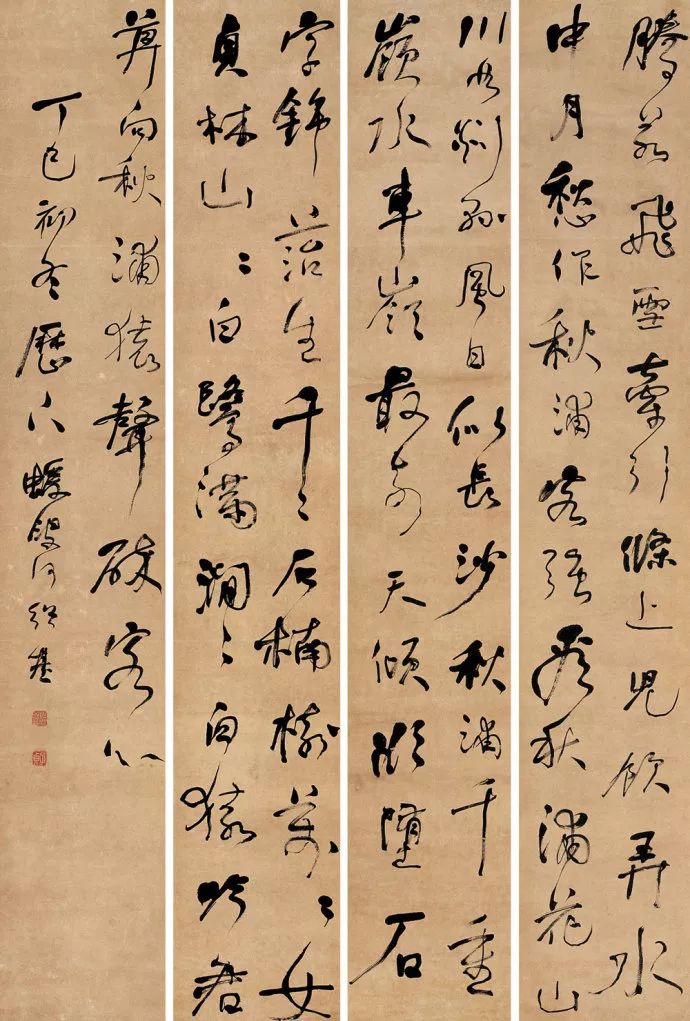 騰若飛雪牽引條上兒飲弄水
中月愁作秋浦客强看秋浦花山
川如剡縣風日似長沙秋浦千重
嶺水車嶺最奇天傾欲墮石
字錦落生千〻石楠樹萬〻女
貞林山〻白鷺滿澗〻白猿吟君
莫向秋浦猿聲碎客心
丁巳初冬歷下蝯叟何紹基